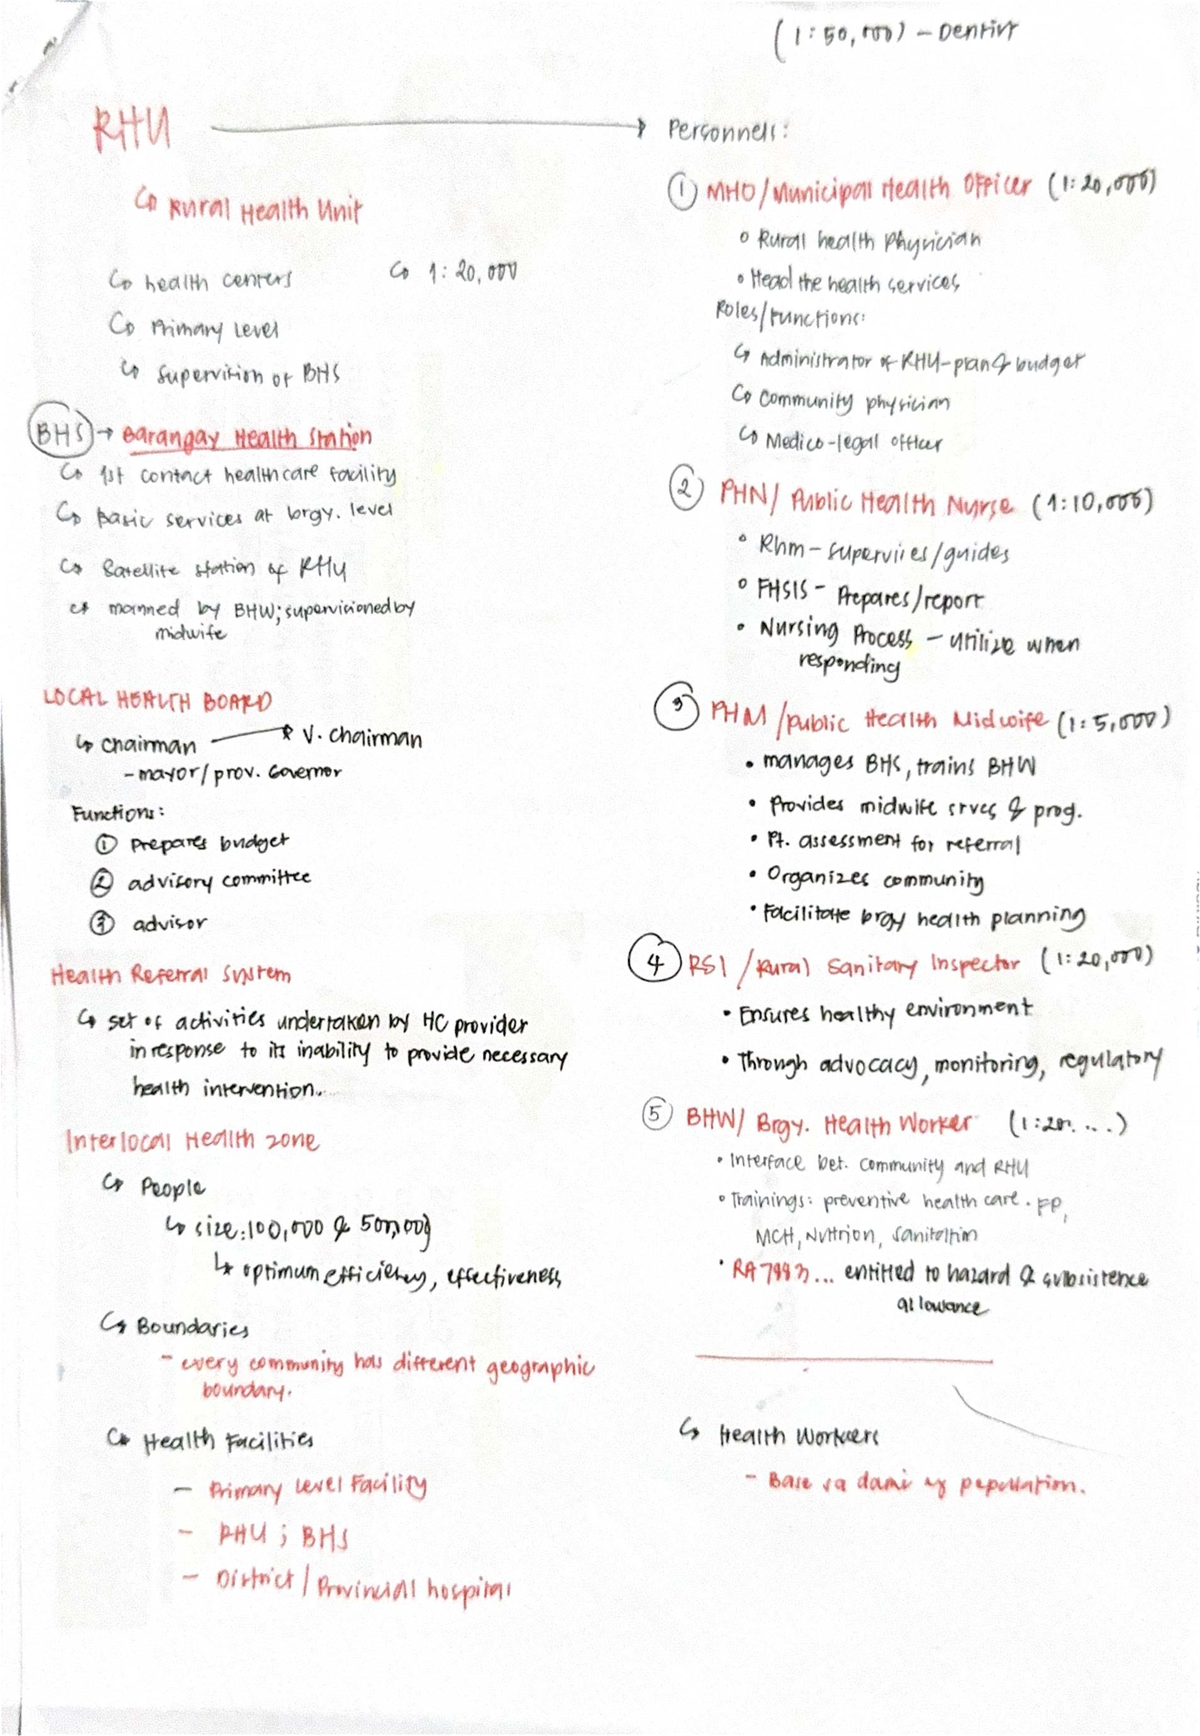 (1:50,000) - Dentist
RHU
↳ Rural Health Unit
↳ health centers ↳ 1:20,000
↳ Primary Level
↳ Supervision of BHS
BHS → Barangay Health Station
↳ 1st contact healthcare facility
↳ Basic services at brgy. level
↳ Satellite station of RHU
↳ manned by BHW; supervisioned by
midwife
LOCAL HEALTH BOARD
↳ chairman → V. chairman
- mayor/prov. Governor
Functions:
① prepares budget
② advisory committee
③ advisor
Health Referral System
↳ set of activities undertaken by HC provider
in response to its inability to provide necessary
health intervention...
Interlocal Health zone
↳ People
↳ size: 100,000 & 500,000
↳ optimum efficiency, effectiveness
↳ Boundaries
- every community has different geographic
boundary.
↳ Health Facilities
- Primary Level Facility
- RHU ; BHS
- District / Provincial hospital
→ Personnels:
① MHO/Municipal Health Officer (1:20,000)
° Rural health Physician
• Head the health services
Roles/Functions:
↳ Administrator of RHU-plan & budget
↳ Community physician
↳ Medico-legal Officer
② PHN/ Public Health Nurse (1:10,000)
° Rhm - supervises/guides
° FHSIS - Prepares/report
• Nursing Process - utilize when
responding
③ PHM /Public Health Midwife (1:5,000)
• manages BHS, trains BHW
• Provides midwife srvcs & prog.
• Pt. assessment for referral
• Organizes community
• Facilitate brgy health planning
④ RSI /Rural Sanitary Inspector (1:20,000)
• Ensures healthy environment
• Through advocacy, monitoring, regulatory
⑤ BHW/ Brgy. Health Worker (1:20....)
• Interface bet. community and RHU
• Trainings: preventive health care. FP,
MCH, Nutrion,
• RA 7883... entitled to hazard & subsistence
allowance
↳ Health Workers
- Base sa dami ng population.